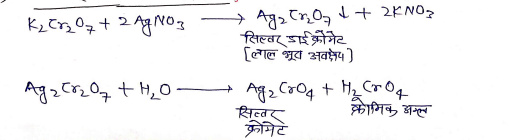 K₂Cr₂O₇ + 2AgNO₃ ⟶ Ag₂Cr₂O₇ ↓ + 2KNO₃
सिल्वर डाईक्रोमेट
[लाल भूरा अवक्षेप]
Ag₂Cr₂O₇ + H₂O ⟶ Ag₂CrO₄ + H₂CrO₄
सिल्वर क्रोमिक अम्ल
क्रोमेट